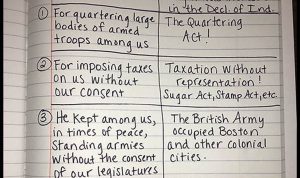 in the Decl. of Ind.
① For quartering large
bodies of armed
troops among us
The Quartering
Act!
② For imposing taxes
on us without
our consent
Taxation without
representation!
Sugar Act, Stamp Act, etc.
③ He Kept among us,
in times of peace,
Standing armies
without the consent
of our legislatures
The British Army
occupied Boston
and other colonial
cities.